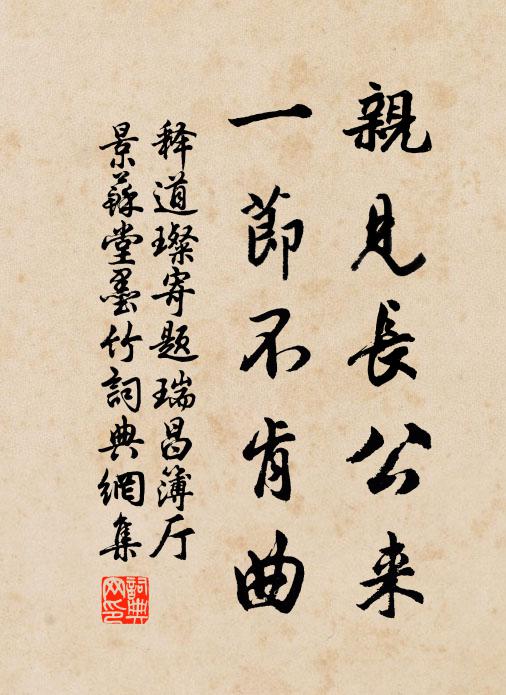 親見長公来
一節不肯曲
释道璨寄题瑞昌簿厅
景蘇堂墨竹詞典網集
詞典网印